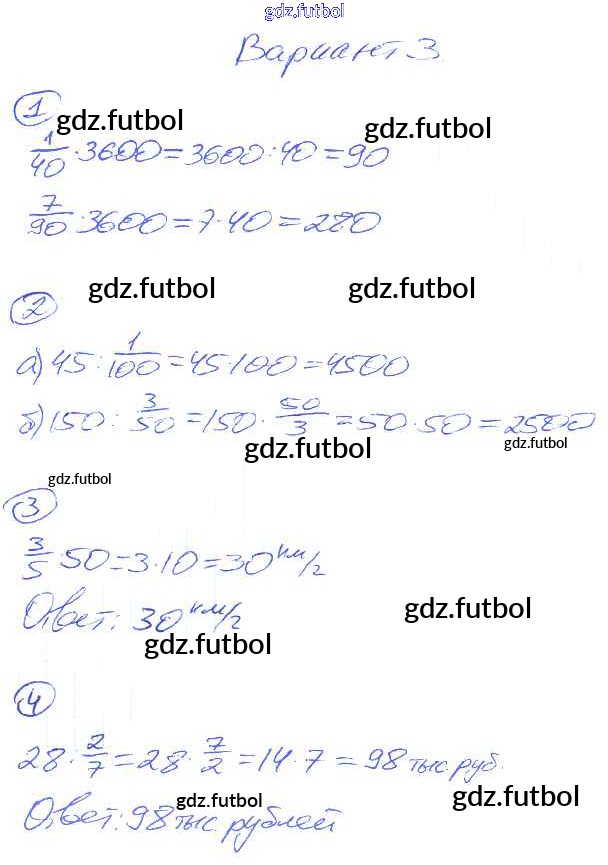 gdz.futbol
Вариант 3
1
gdz.futbol gdz.futbol
1/40 · 3600 = 3600 : 40 = 90
7/90 · 3600 = 7 · 40 = 280
gdz.futbol gdz.futbol
2
а) 45 : 1/100 = 45 · 100 = 4500
б) 150 : 3/50 = 150 · 50/3 = 50 · 50 = 2500
gdz.futbol gdz.futbol
gdz.futbol
3
3/5 · 50 = 3 · 10 = 30 км/г
Ответ: 30 км/г
gdz.futbol
gdz.futbol
4
28 : 2/7 = 28 · 7/2 = 14 · 7 = 98 тыс. руб.
gdz.futbol gdz.futbol
Ответ: 98 тыс. рублей